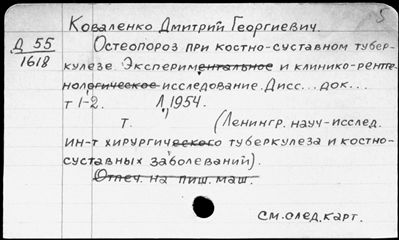 Коваленко Дмитрий Георгиевич.
Д 55
1618
Остеопороз при костно-суставном тубер-
кулезе. Экспериментальное и клинико-рентге-
нологическое исследование. Дисс... док...
т 1-2. Л, 1954.
т. (Ленингр. науч-исслед.
ин-т хирургического туберкулеза и костно-
суставных заболеваний).
Отпеч. на пиш. маш.
см. след. карт.